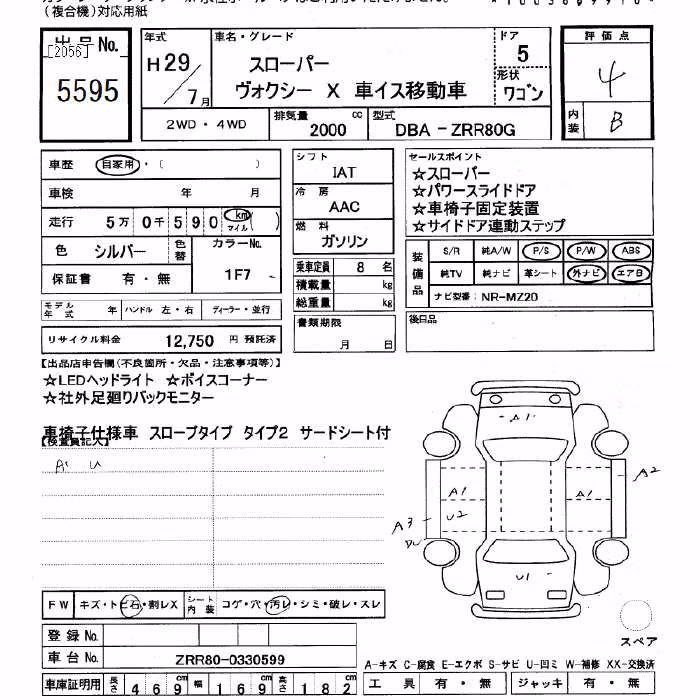 (複合機)対応用紙
出品No.
[2056]
5595
年式
H29/7月
車名・グレード
スローパー
ヴォクシー X 車イス移動車
ドア
5
形状
ワゴン
評価点
4
内装
B
2WD・4WD
排気量
2000 cc
型式
DBA-ZRR80G
車歴 自家用・( )
車検 年 月
走行 5万0千590 km マイル( )
色 シルバー 色替
カラーNo.
1F7
保証書 有・無
モデル年式 年 ハンドル 左・右 ディーラー・並行
リサイクル料金 12,750 円 預託済
シフト
IAT
冷房
AAC
燃料
ガソリン
乗車定員 8 名
積載量 kg
総重量 kg
書類期限
月 日
セールスポイント
☆スローパー
☆パワースライドドア
☆車椅子固定装置
☆サイドドア連動ステップ
装備品
S/R 純A/W P/S P/W ABS
純TV 純ナビ 革シート 外ナビ エアB
ナビ型番: NR-MZ20
後日品
【出品店申告欄(不良箇所・欠品・注意事項等)】
☆LEDヘッドライト ☆ボイスコーナー
☆社外足廻りバックモニター
車椅子仕様車 スロープタイプ タイプ2 サードシート付
【検査員記入】
A' U
A1
A2
A1
A1
U2
A3
U1
FW キズ・トビ石・割レX シート内装 コゲ・穴・汚レ・シミ・破レ・スレ
登録No.
車台No. ZRR80-0330599
車庫証明用 長さ 469cm 幅 169cm 高さ 182cm
スペア
A-キズ C-腐食 E-エクボ S-サビ U-凹ミ W-補修 XX-交換済
工具 有・無 ジャッキ 有・無